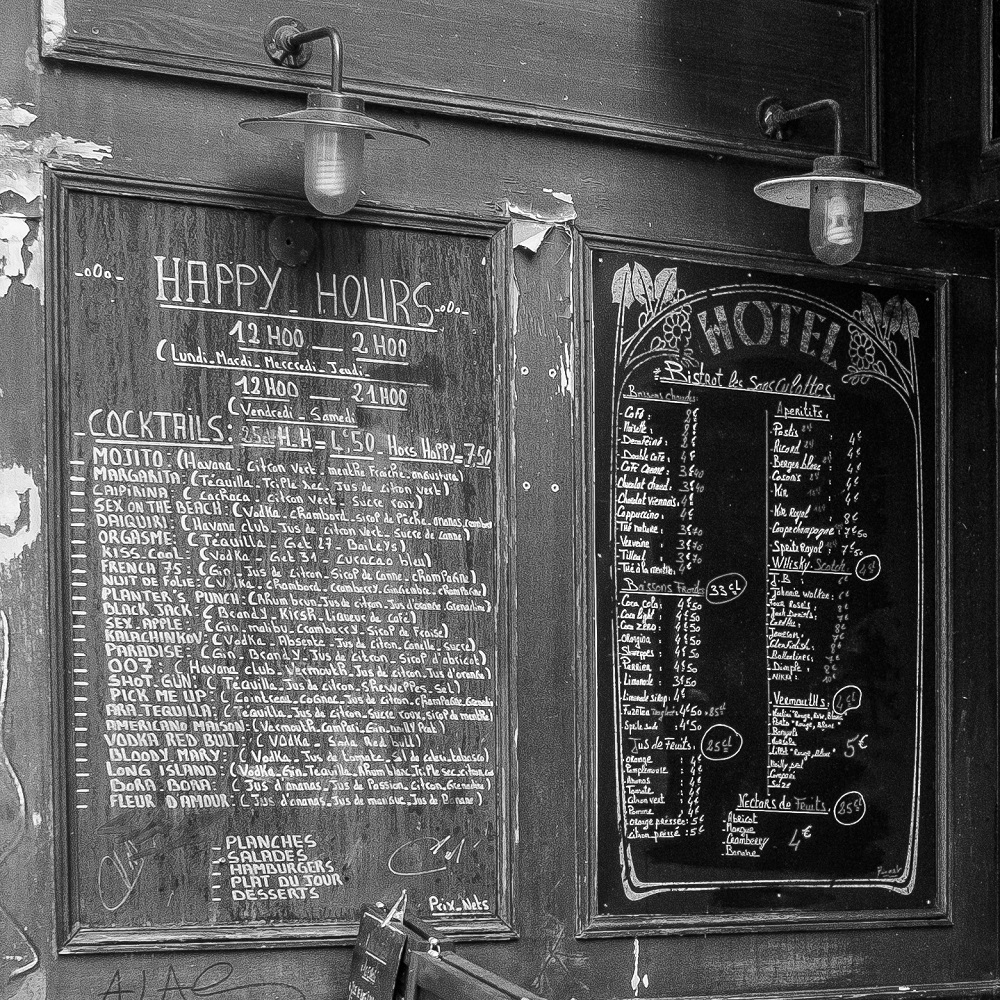 HAPPY_HOURS
12H00 — 2H00
(Lundi_Mardi_Mercredi_Jeudi_
12H00 — 21H00
(Vendredi_Samedi
COCKTAILS: H_H=4,50 Hors Happy=7,50
MOJITO: (Havana_citron vert_menthe fraiche_angustura)
MARGARITA: (Téquilla_Triple sec_Jus de citron vert)
CAIPIRINA: (cachaca_citron vert_sucre roux)
SEX ON THE BEACH: (Vodka_cRambord_sirop de Pêche_ananas_
DAIQUIRI: (Havana club_Jus de citron vert_sucre de canne)
ORGASME: (Téquilla_Get 27_Baileys)
KISS COOL: (Vodka_Get 31_curacao bleu)
FRENCH 75: (Gin_Jus de citron_Sirop de canne_cRampagne)
NUIT DE FOLIE: (Vodka_cRambord_cramberry_Gingembre_cRampagne)
PLANTER'S PUNCH: (RRum brun_Jus de citron_Jus d'orange_Grenadine)
BLACK JACK: (Brandy_KirsR_Liqueur de café)
SEX APPLE: (Gin_malibu_cramberry_Sirop de Fraise)
KALACHINKOV: (Vodka_Absence_Jus de citron_canelle_sucre)
PARADISE: (Gin_Brandy_Jus de citron_sirop d'abricot)
007: (Havana club_VermoutR_Jus de citron)
SHOT GUN: (Téquilla_Jus de citron_sRewePPes_sel)
PICK ME UP: (Cointreau_cognac_Jus de citron_cRampagne_Grenadine
ARA TEQUILLA: (Téquilla_Jus de citron_sucre roux_sirop de menthe)
AMERICANO MAISON: (VermoutR_campari_Gin_
VODKA RED BULL: (Vodka_Soda Red bull)
BLOODY MARY: (Vodka_Jus de tomate_Sel de celeri_tabasco)
LONG ISLAND: (Vodka_Gin_Tequilla_RRum blanc_Triple sec_citron_
BORA BORA: (Jus d'ananas_Jus de Passion_citron_Grenadine)
FLEUR D'AMOUR: (Jus d'ananas_Jus de mangue_Jus de Banane)
_ PLANCHES
_ SALADES
_ HAMBURGERS
_ PLAT DU JOUR
_ DESSERTS
Prix_Nets
HOTEL
Bistrot les Sans Culottes
Boissons chaudes:
Café: 2€
Noisette:
Decafeiné:
Double café: 4€
Café Creme: 3€40
Chocolat chaud: 3€40
Chocolat viennois: 4€
Cappuccino: 4€
Thé nature: 3€70
Verveine: 3€70
Tilleul: 3€70
Thé à la menthe: 4€
Boissons Froides 33cl
Coca cola: 4€50
Coca light: 4€50
Coca zero: 4€50
Orangina: 4€50
Shweppes: 4€50
Perrier: 4€50
Limonade: 3€50
Limonade sirop: 4€
Fuzetea
Sprite 4€50
Jus de Fruits: 25cl
orange: 4€
Pamplemousse: 4€
Ananas: 4€
Tomate: 4€
Citron vert: 4€
Pomme: 4€
orange pressée: 5€
citron pressé: 5€
Aperitifs:
Pastis 4€
Ricard 4€
Berger blanc 4€
Casanis 4€
Kir 4€
Kir Royal 8€
Coupe champagne: 7€50
Sprite Royal: 7€50
Whisky_Scotch: 4cl
J.B: 6€
Johnnie walker: 6€
Four Rose's: 6€
Jack Daniel's: 7€
Jameson:
Glenfidish:
Ballantines: 7€
Dimple: 8€
Nikka: 10€
Vermouths:
Martini "Rouge, Rosé, Blanc"
Porto "Rouge, Blanc"
Banyuls
Marsala
Lillet "Rouge, Blanc" 5€
Noilly Prat
Campari
Suze
Nectars de Fruits: 25cl
_Abricot
_Mangue
_Cramberry 4€
_Banane